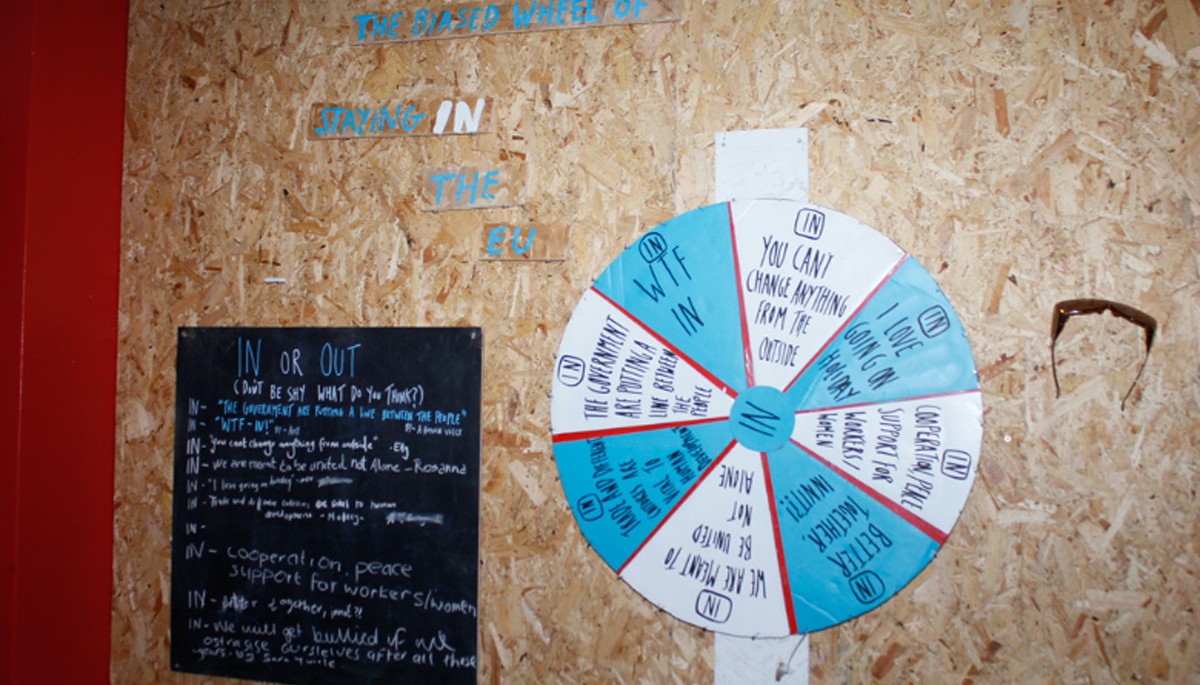 THE BIASED WHEEL OF
STAYING IN
THE
EU
IN OR OUT
(DON'T BE SHY WHAT DO YOU THINK?)
IN - "THE GOVERNMENT ARE PUTTING A LINE BETWEEN THE PEOPLE"
IN - "WTF - IN!"
IN - "you cant change anything from outside" - Elly
IN - we are meant to be united not Alone - Rosanna
IN - "I love going on holiday"
IN - Trade and different cultures are vital to human
development -
IN -
IN - cooperation, peace
support for workers/women
IN - better together, innit?!
IN - We will get bullied if we
ostrasise ourselves after all these
years -
IN
YOU CANT
CHANGE ANYTHING
FROM THE
OUTSIDE
IN
I LOVE
GOING ON
HOLIDAY
IN
COOPERATION, PEACE
SUPPORT FOR
WORKERS/
WOMEN
IN
BETTER
TOGETHER,
INNIT?!
IN
WE ARE MEANT TO
BE UNITED
NOT
ALONE
IN
TRADE AND DIFFERENT
CULTURES ARE
VITAL TO
HUMAN
DEVELOPMENT
IN
THE GOVERNMENT
ARE PUTTING A
LINE BETWEEN
THE
PEOPLE
IN
WTF
IN
IN